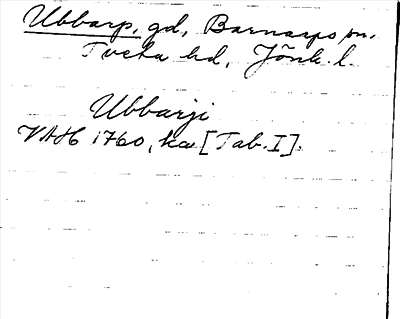 Ubbarp, gd, Barnarps sn,
Tveta hd, Jönk. l.
Ubbarji
VAH 1760, ka [Tab. I].